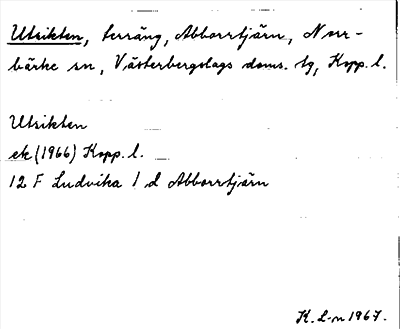 Utsikten, terräng, Abborrtjärn, Norr-
bärke sn, Västerbergslags doms. tg, Kopp. l.
Utsikten
ek (1966) Kopp. l.
12 F Ludvika 1 d Abborrtjärn
K. L-n 1967.